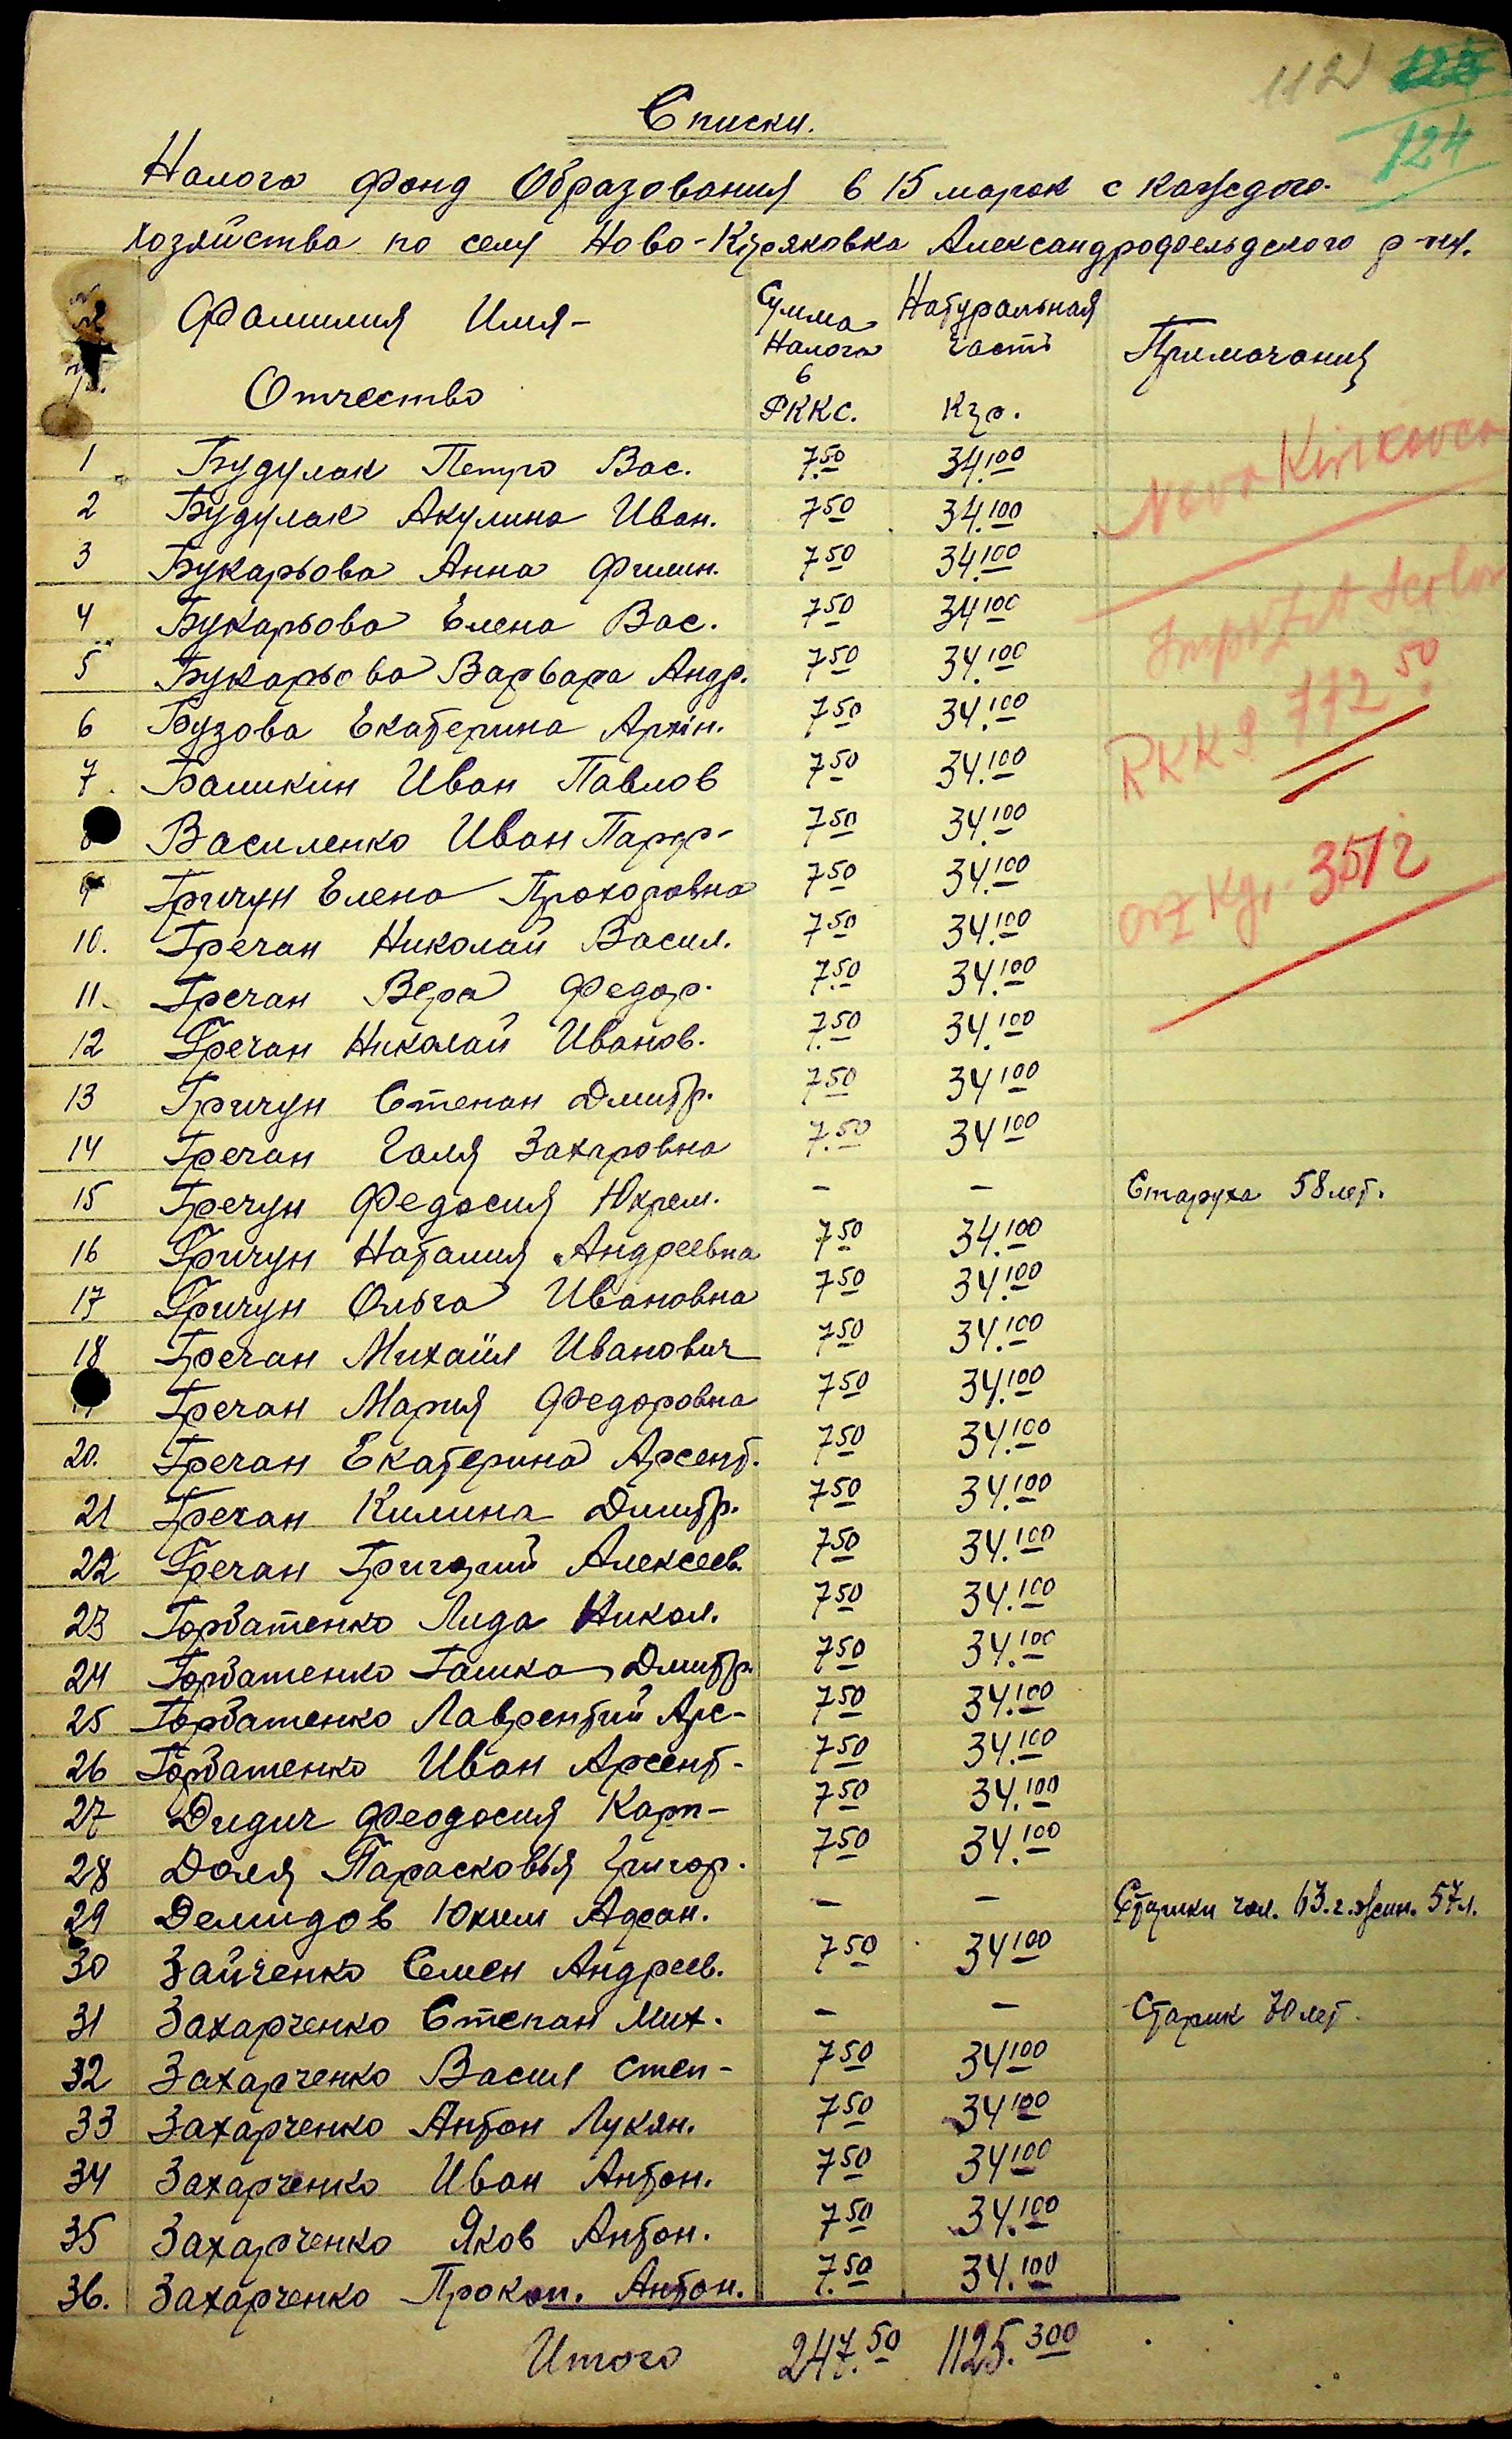 112 124
Списки.
Налога Фонд Образования в 15 марок с каждого
хозяйства по селу Ново-Киряковка Александрофельдского р-на.
Фамилия Имя-
Отчество
Сумма
Налога
в
РККС.
Натуральная
часть
Кгр.
Примечания
Nova Kirikovca
Impozit Scolar
RKKS 772 50
orz Kg. 3512
1 Будулак Петро Вас. 7.50 34.100
2 Будулак Акулина Иван. 7 50 34.100
3 Букарьова Анна Филип. 7 50 34.100
4 Букарьова Елена Вас. 7 50 34 100
5 Букарьова Варвара Андр. 7 50 34.100
6 Бузова Екатерина 7 50 34.100
7. Башикин Иван Павлов 7 50 34.100
8 Василенко Иван Парф- 7 50 34.100
9 Гричун Елена Прохоровна 7 50 34.100
10. Гречан Николай Васил. 7 50 34.100
11. Гречан Вера Федор. 7.50 34.100
12 Гречан Николай Иванов. 7.50 34.100
13 Гричун Степан Дмитр. 7 50 34 100
14 Гречан Галя Захаровна 7.50 34 100
15 Гречун Федосия Юхрем. – – Старуха 58 лет.
16 Гричун Наталия Андреевна 7 50 34.100
17 Гричун Ольга Ивановна 7 50 34.100
18 Гречан Михаил Иванович 7 50 34.100
Гречан Мария Федоровна 7 50 34.100
20. Гречан Екатерина Арсент. 7 50 34.100
21 Гречан Килина Дмитр. 7 50 34.100
22 Гречан Григорий Алексеев. 7 50 34.100
23 Горбатенко Лида Никол. 7 50 34.100
24 Горбатенко Гашка Дмитр. 7 50 34.100
25 Горбатенко Лаврентий Арс- 7 50 34.100
26 Горбатенко Иван Арсент- 7 50 34.100
27 Дидич Феодосия Карп- 7 50 34.100
28 Доля Парасковья Григор. 7 50 34.100
29 Демидов Юхим Афан. – – Старики чол. 63. г. жин. 57 л.
30 Зайченко Семен Андреев. 7 50 34 100
31 Захарченко Степан Мих. – – Старик 70 лет.
32 Захарченко Васил Степ- 7 50 34 100
33 Захарченко Антон Лукян. 7 50 34 100
34 Захарченко Иван Антон. 7 50 34 100
35 Захарченко Яков Антон. 7 50 34.100
36. Захарченко Прокоп. Антон. 7.50 34.100
Итого 247.50 1125.300